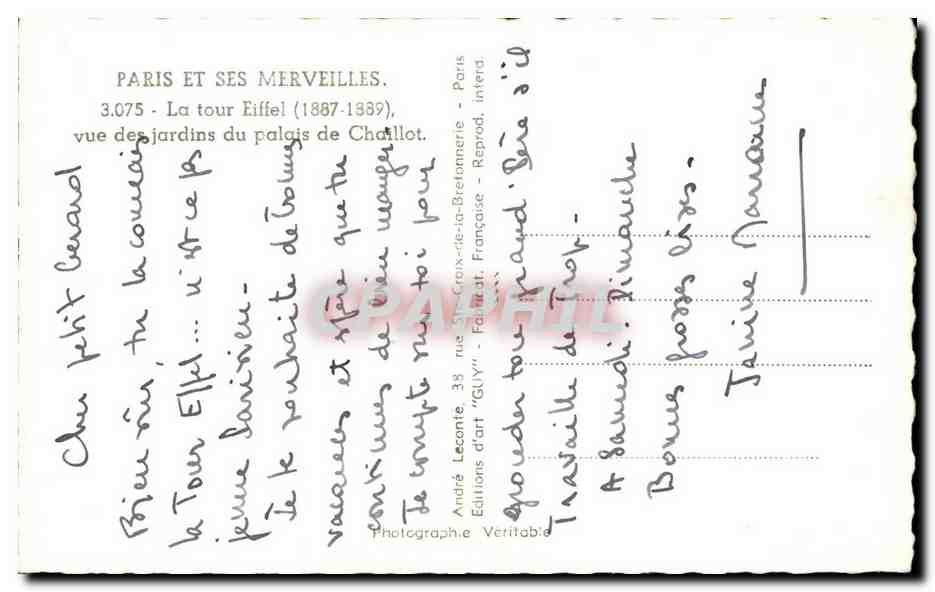 PARIS ET SES MERVEILLES.
3.075 - La tour Eiffel (1887-1889),
vue des jardins du palais de Chaillot.
Cher petit Gérard
Bien sûr, tu la connais
la Tour Eiffel... n'est ce pas
jeune Parisien -
Je te souhaite de bonnes
vacances et espère que tu
continues de bien manger -
Je compte sur toi pour
gronder ton grand-Père s'il
Travaille de Trop -
A Samedi. Dimanche
Bonnes grosses bises -
Janine
André Leconte, 38 rue Ste-Croix-de-la-Bretonnerie - Paris
Editions d'art "GUY" - Fabricat. Française - Reprod. interd.
Photographie Véritable
CPAPHIL